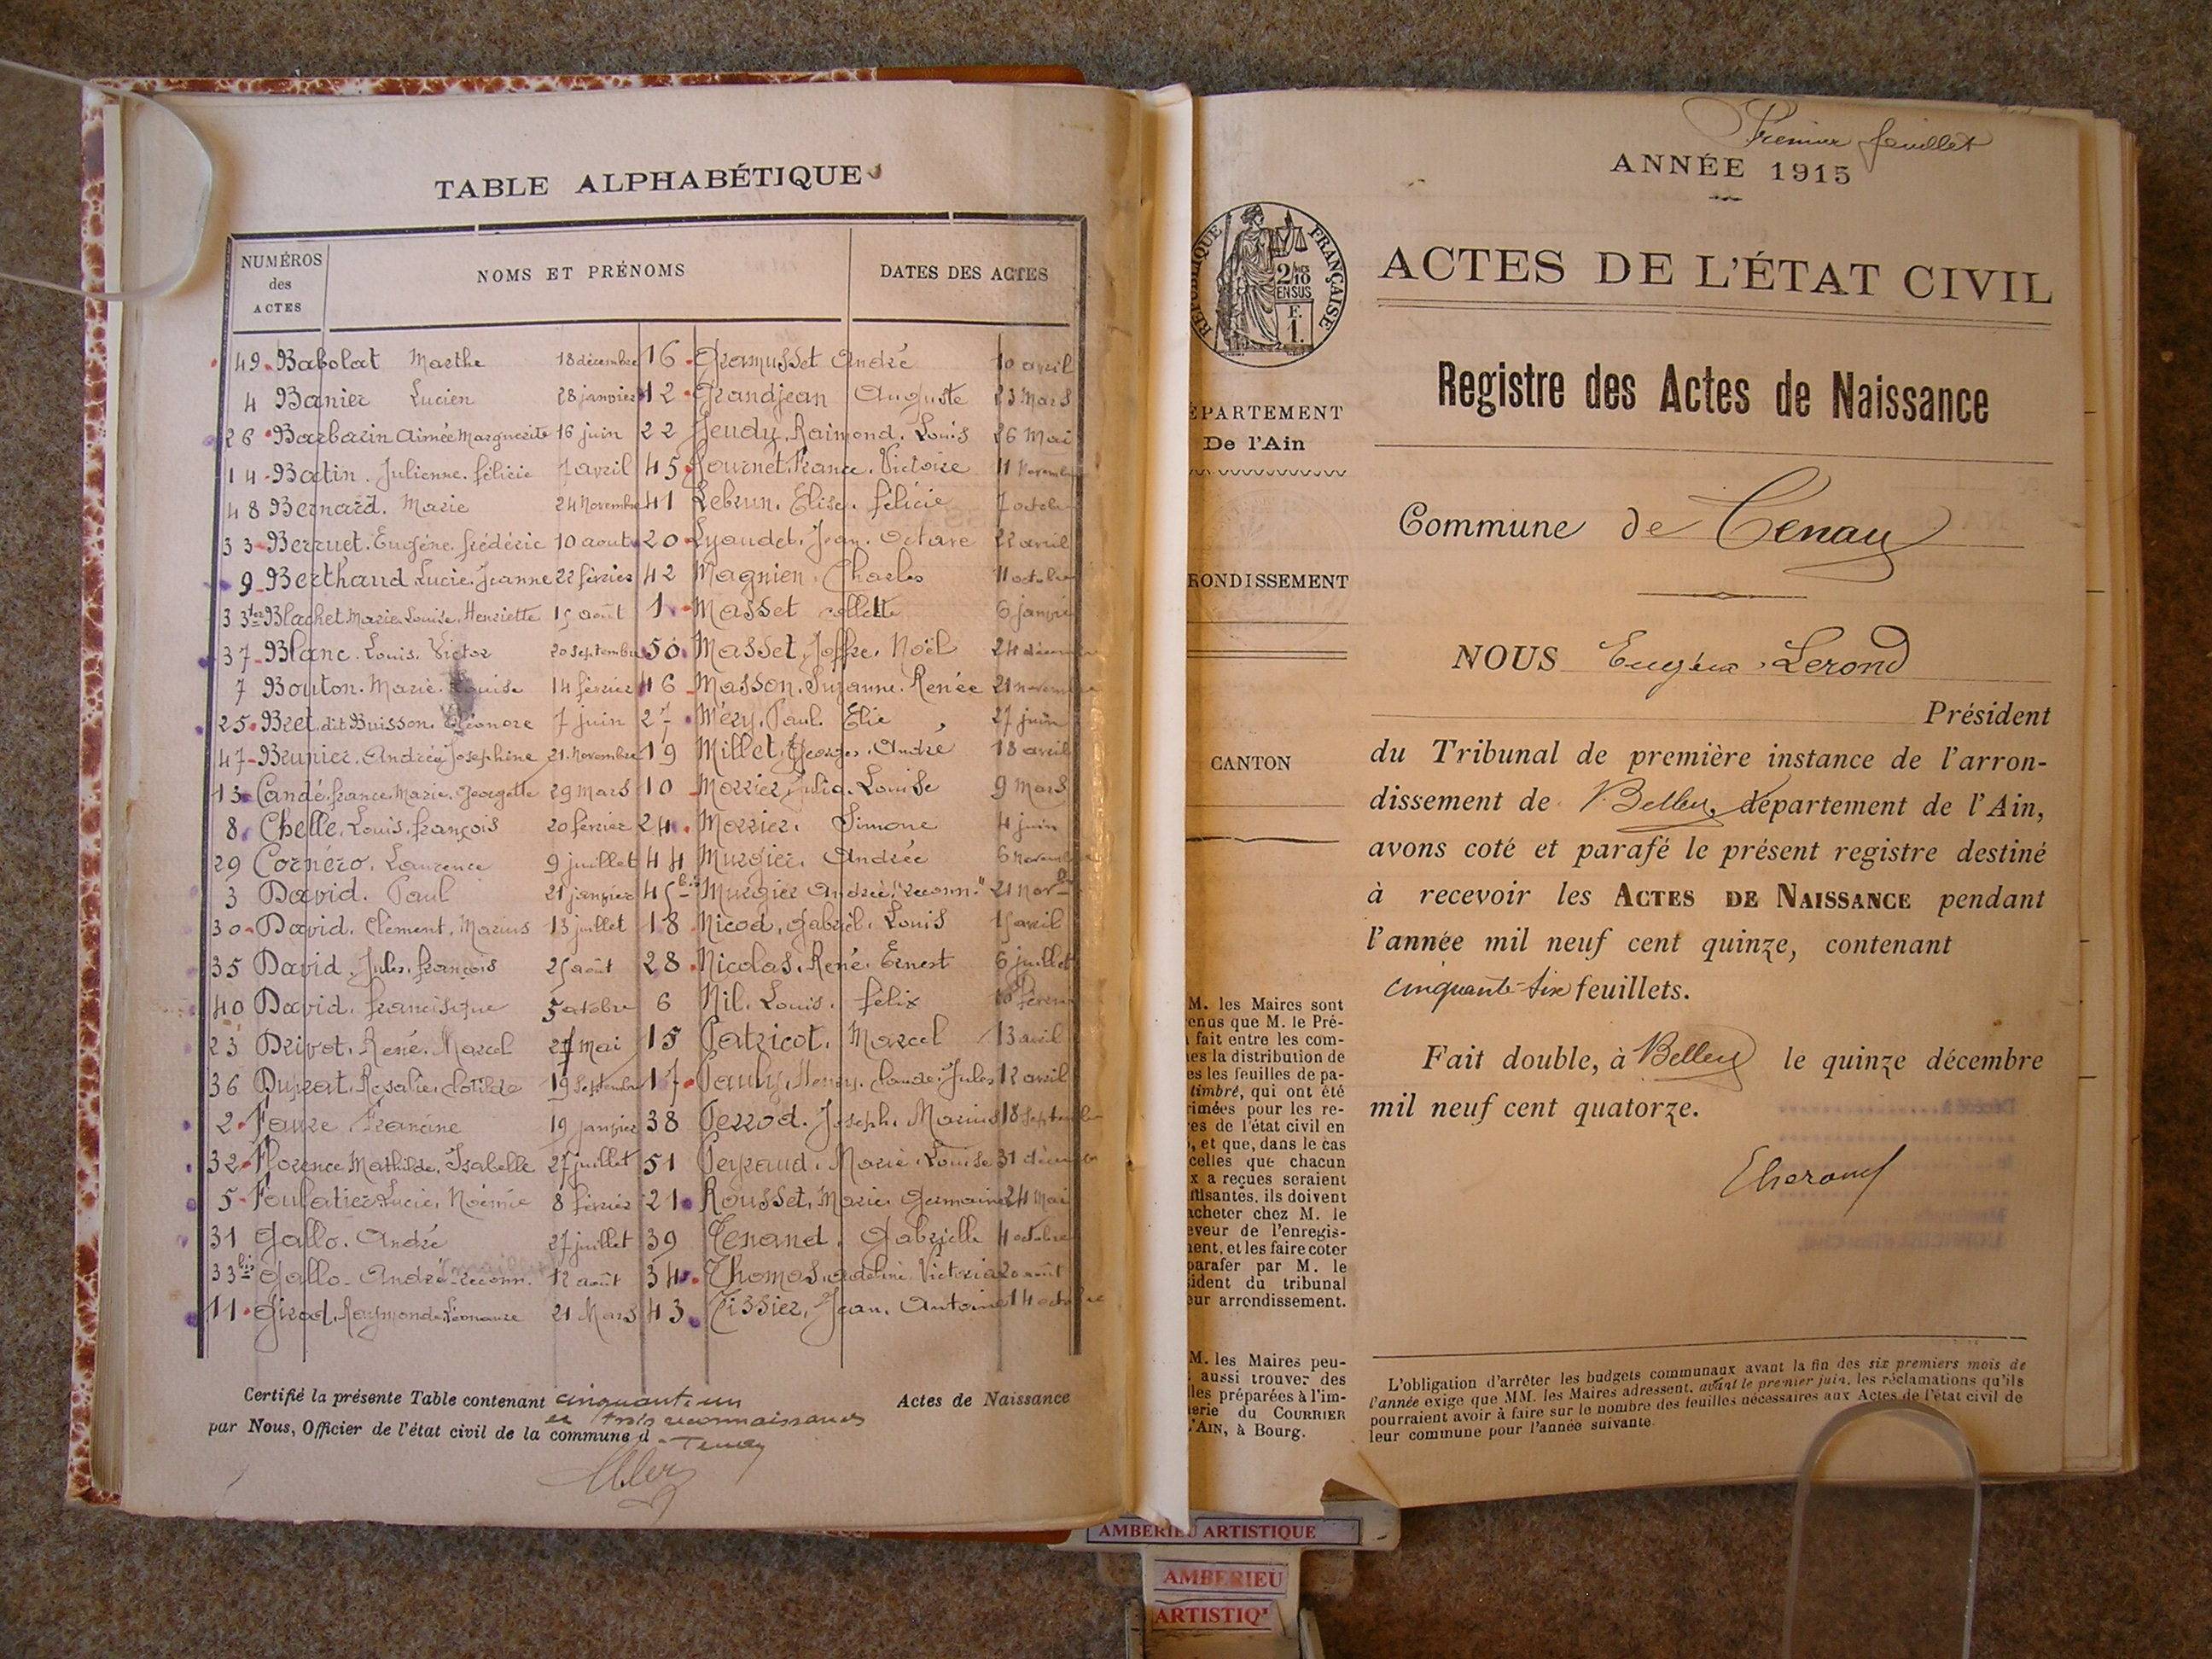 TABLE ALPHABÉTIQUE
NUMÉROS des ACTES
NOMS ET PRÉNOMS
DATES DES ACTES
49 Babolat Marthe 18 décembre
4 Banier Lucien 28 janvier
26 Barbarin Aimée Marguerite 16 juin
14 Batin. Julienne. félicie 7 avril
48 Bernard. Marie 24 Novembre
33 Berruet. Eugène. frédéric 10 aout
9 Berthaud Lucie. Jeanne 22 février
33 ter Blachet Marie Louise. Henriette 15 août
37 Blanc. Louis. Victor 20 septembre
7 Bouton. Marie. Louise 14 février
25 Bret dit Buisson. Eléonore 7 juin
47 Brunier. Andréa Josephine 21. Novembre
13 Candé. france. Marie. Georgette 29 mars
8 Chelle. Louis. françois 20 février
29 Cornéro. Laurence 9 juillet
3 David. Paul 21 janvier
30 David. Clément. Marius 13 juillet
35 David. Jules. françois 25 août
40 David. francisque 5 octobre
23 Drivot. René. Marcel 27 mai
36 Duprat. Rosalie. Clotilde 19 Septembre
2 Faure Francine 19 janvier
32 Florence Mathilde. Isabelle 27 juillet
5 Foulatier Lucie. Noémie 8 février
31 Gallo. André 27 juillet
33 bis Gallo. André reconn. 12 août
11 Girod. Raymonde. Léonause 21 Mars
16 Gramusset André 10 avril
12 Grandjean Auguste 23 Mars
22 Jeudy. Raimond. Louis 26 Mai
45 Journet. France. Victoire 11 Novembre
41 Lebrun. Elise. félicie 7 octob
20 Lyaudet. Jean. Octave 22 avril
42 Magnien. Charles 11 octobre
1 Masset collette 6 janvi
50 Masset. Joffre. Noël 24 décem
46 Masson. Suzanne. Renée 21 novembre
27 Méry. Paul. Elie 27 juin
19 Millet. Georges. André 18 avril
10 Morrier. Julia. Louise 9 mars
24 Morrier. Simone 4 juin
44 Murgier. Andrée 6 Novembre
45 bis Murgier Andrée "reconn." 21 Nov
18 Nicod. Gabriel. Louis 15 avril
28 Nicolas. René. Ernest 6 juillet
6 Nil. Louis. félix 10 févri
15 Patricot. Marcel 13 avril
17 Pauly. Henry. Claude. Jules 12 avril
38 Perrod. Joseph. Marius 18 Septemb
51 Peyraud. Marie. Louise 31 décem
21 Rousset. Marie. Germaine 24 mai
39 Tenand. Gabrielle 4 octobre
34 Thomas. adeline. Victoria 20 août
43 Tissier. Jean. Antoine 14 octobre
Certifié la présente Table contenant cinquante un Actes de Naissance
et trois reconnaissances
par Nous, Officier de l'état civil de la commune d Tenay
Premier feuillet
ANNÉE 1915
RÉPUBLIQUE FRANÇAISE
2/10 EN SUS
F. 1.
ACTES DE L'ÉTAT CIVIL
Registre des Actes de Naissance
ÉPARTEMENT
De l'Ain
RONDISSEMENT
CANTON
Commune de Tenay
NOUS Eugène Lerond
Président
du Tribunal de première instance de l'arron-
dissement de Belley, département de l'Ain,
avons coté et parafé le présent registre destiné
à recevoir les ACTES DE NAISSANCE pendant
l'année mil neuf cent quinze, contenant
cinquante-six feuillets.
Fait double, à Belley le quinze décembre
mil neuf cent quatorze.
ELerond
M. les Maires sont
enus que M. le Pré-
fait entre les com-
es la distribution de
es les feuilles de pa-
timbré, qui ont été
rimées pour les re-
es de l'état civil en
, et que, dans le cas
celles que chacun
x a reçues seraient
ffisantes, ils doivent
acheter chez M. le
eveur de l'enregis-
ent, et les faire coter
parafer par M. le
ident du tribunal
eur arrondissement.
M. les Maires peu-
aussi trouver des
les préparées à l'im-
erie du COURRIER
'AIN, à Bourg.
L'obligation d'arrêter les budgets communaux avant la fin des six premiers mois de
l'année exige que MM. les Maires adressent, avant le premier juin, les réclamations qu'ils
pourraient avoir à faire sur le nombre des feuilles nécessaires aux Actes de l'état civil de
leur commune pour l'année suivante.
AMBERIEU ARTISTIQUE
AMBERIEU
ARTISTIQ'